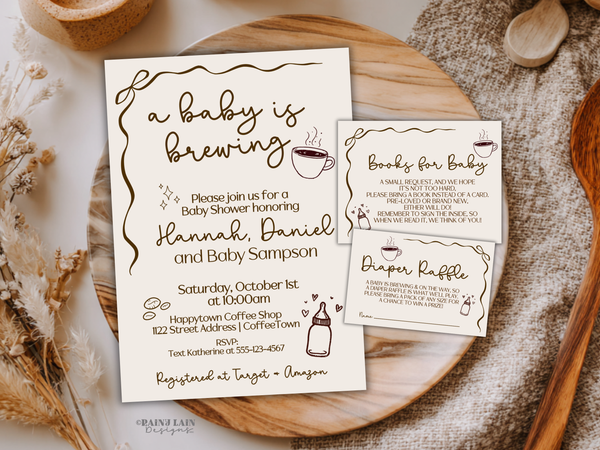 a baby is
brewing
Please join us for a
Baby Shower honoring
Hannah, Daniel
and Baby Sampson
Saturday, October 1st
at 10:00am
Happytown Coffee Shop
1122 Street Address | CoffeeTown
RSVP:
Text Katherine at 555-123-4567
Registered at Target + Amazon
Books for Baby
A SMALL REQUEST, AND WE HOPE
IT'S NOT TOO HARD,
PLEASE BRING A BOOK INSTEAD OF A CARD.
PRE-LOVED OR BRAND NEW,
EITHER WILL DO!
REMEMBER TO SIGN THE INSIDE, SO
WHEN WE READ IT, WE THINK OF YOU!
Diaper Raffle
A BABY IS BREWING & ON THE WAY, SO
A DIAPER RAFFLE IS WHAT WE'LL PLAY,
PLEASE BRING A PACK OF ANY SIZE FOR
A CHANCE TO WIN A PRIZE!
Name:
©RAINY LAIN
Designs